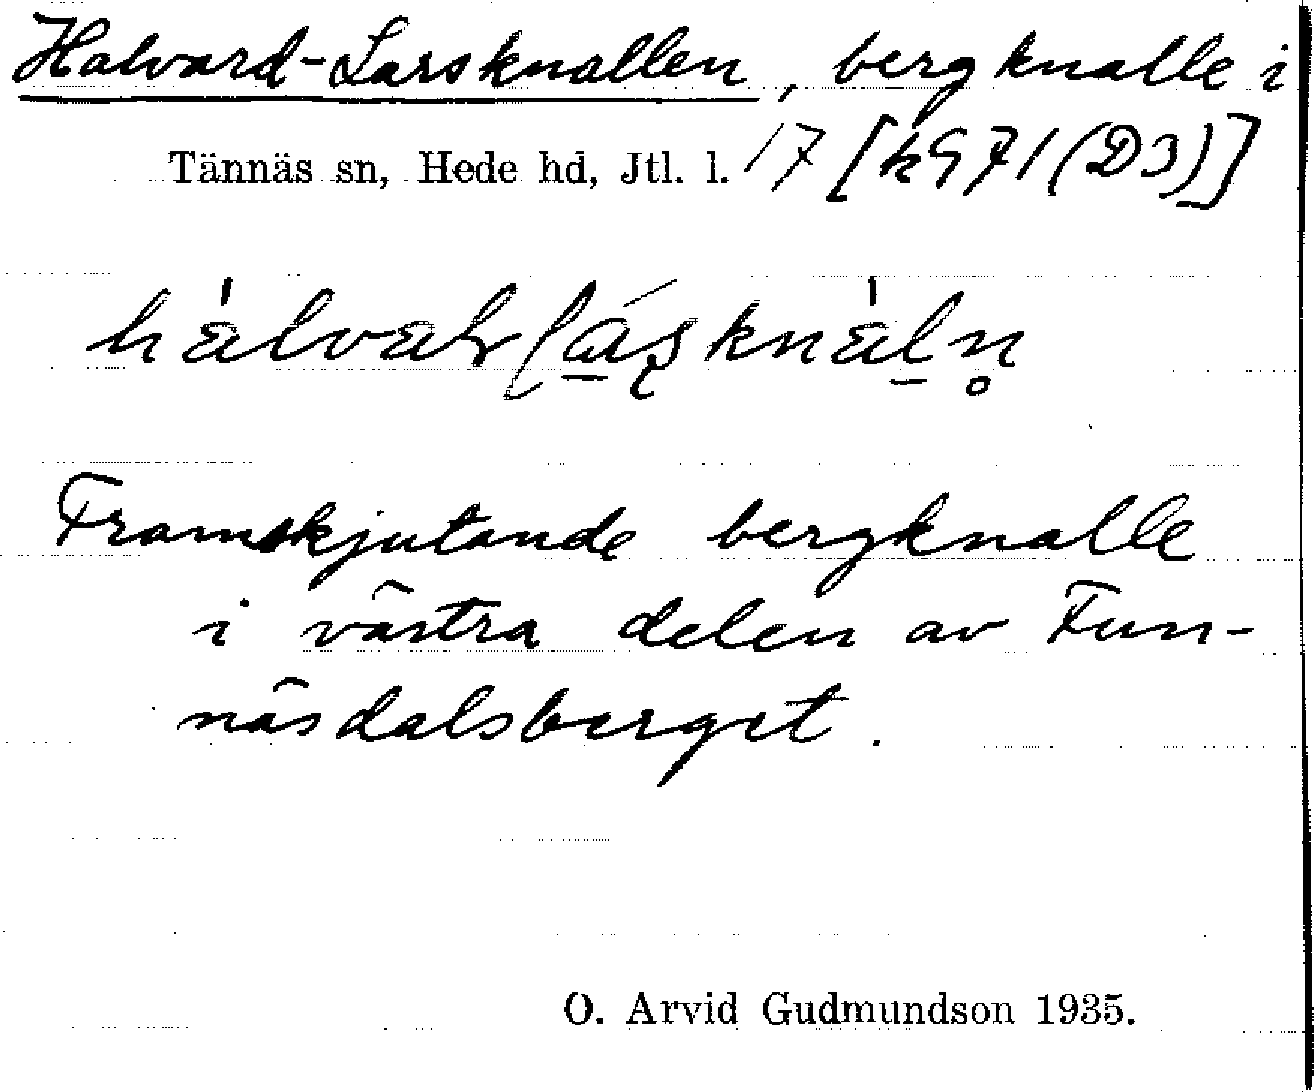 Halvard-Larsknallen, bergknalle i
Tännäs sn, Hede hd, Jtl. l. 17 [k971(D3)]
Framskjutande bergknalle
i västra delen av Fun-
näsdalsberget.
O. Arvid Gudmundson 1935.